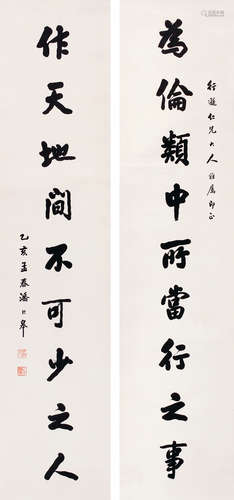 為倫類中所當行之事
行遜仁兄大人雅屬即正
作天地間不可少之人
乙亥孟春潘齡皋